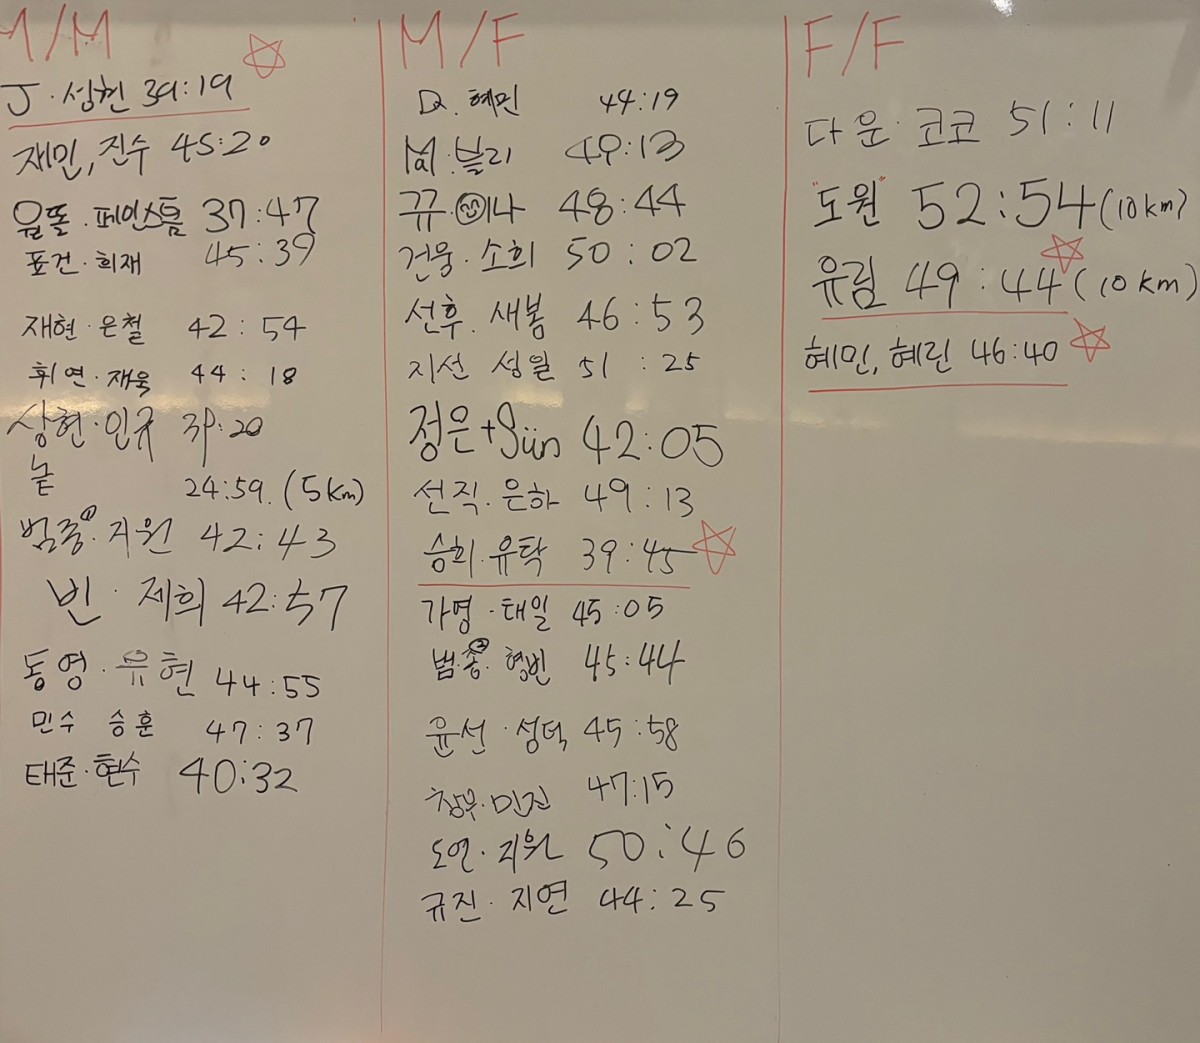 M/M
J · 성현 39:19
재민, 진수 45:20
윤똘 · 페인스톰 37:47
표건 · 희재 45:39
재현 · 은철 42:54
휘연 · 재욱 44:18
상현 · 인규 39:20
늍 24:59. (5km)
범종① · 지원 42:43
빈 · 제희 42:57
동영 · 유현 44:55
민수 승훈 47:37
태준 · 현수 40:32
M/F
D2. 혜민 44:19
M · 블리 49:13
뀨 · 이나 48:44
건웅 · 소희 50:02
선후. 새봄 46:53
지선 성월 51:25
정은+Sün 42:05
선직. 은하 49:13
승희. 유탁 39:45
가영 · 태일 45:05
범종② · 형빈 45:44
윤선 · 성덕 45:58
창부 · 민진 47:15
도연 · 지원 50:46
규진 · 지연 44:25
F/F
다운 · 코코 51:11
"도원" 52:54 (10km)
유림 49:44 (10km)
혜민, 혜린 46:40